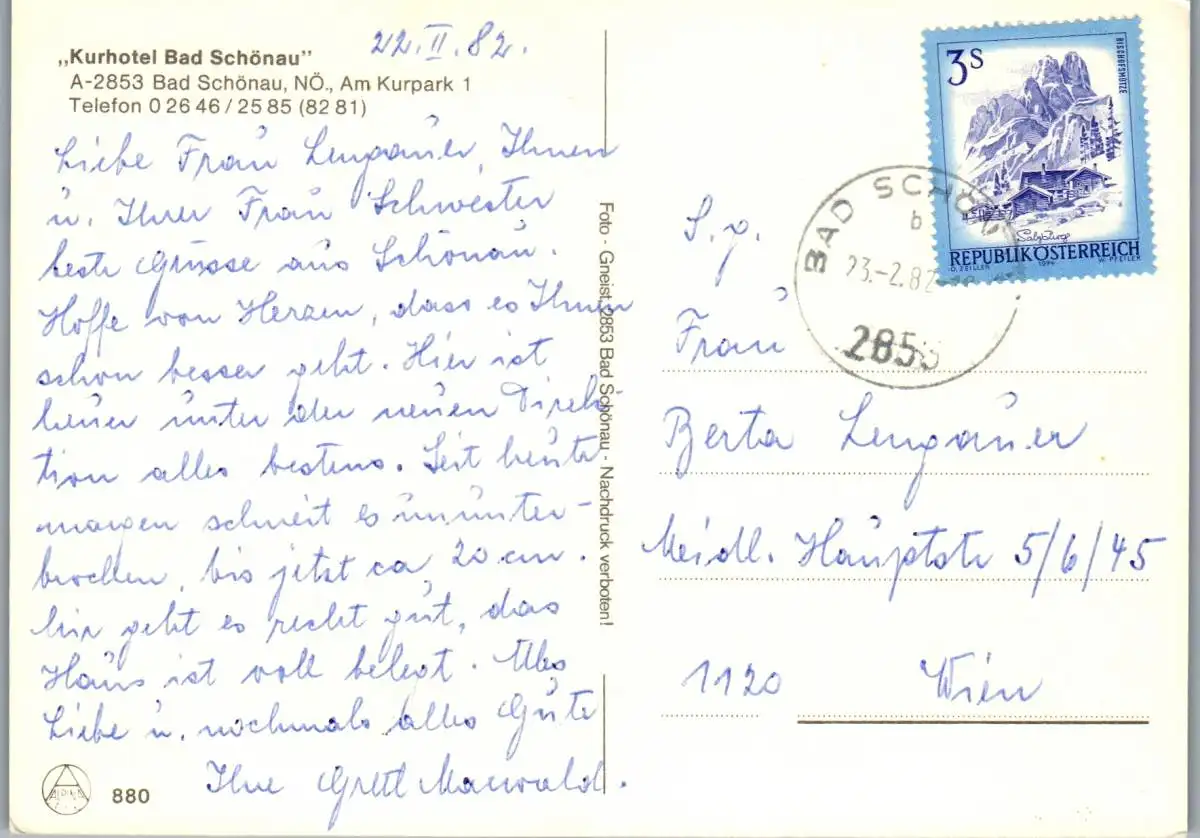 „Kurhotel Bad Schönau"
A-2853 Bad Schönau, NÖ., Am Kurpark 1
Telefon 0 26 46 / 25 85 (82 81)
22.II.82.
Liebe Frau Lengauer, Ihnen
u. Ihrer Frau Schwester
beste Grüsse aus Schönau.
Hoffe von Herzen, dass es Ihnen
schon besser geht. Hier ist
heuer unter der neuen Direk-
tion alles bestens. Seit heute
morgen schneit es ununter-
brochen, bis jetzt ca, 20 cm.
Mir geht es recht gut, das
Haus ist voll belegt. Alles
Liebe u. nochmals alles Gute
Ihre Grettl
880
Foto - Gneist, 2853 Bad Schönau - Nachdruck verboten!
3S
BISCHOFSMÜTZE
Salzburg
REPUBLIK ÖSTERREICH
O. ZEILLER 1974 W. PFEILER
BAD SCHÖ
b
23.-2.82
285
S.g.
Frau
Berta Lengauer
Meidl. Hauptstr 5/6/45
1120 Wien